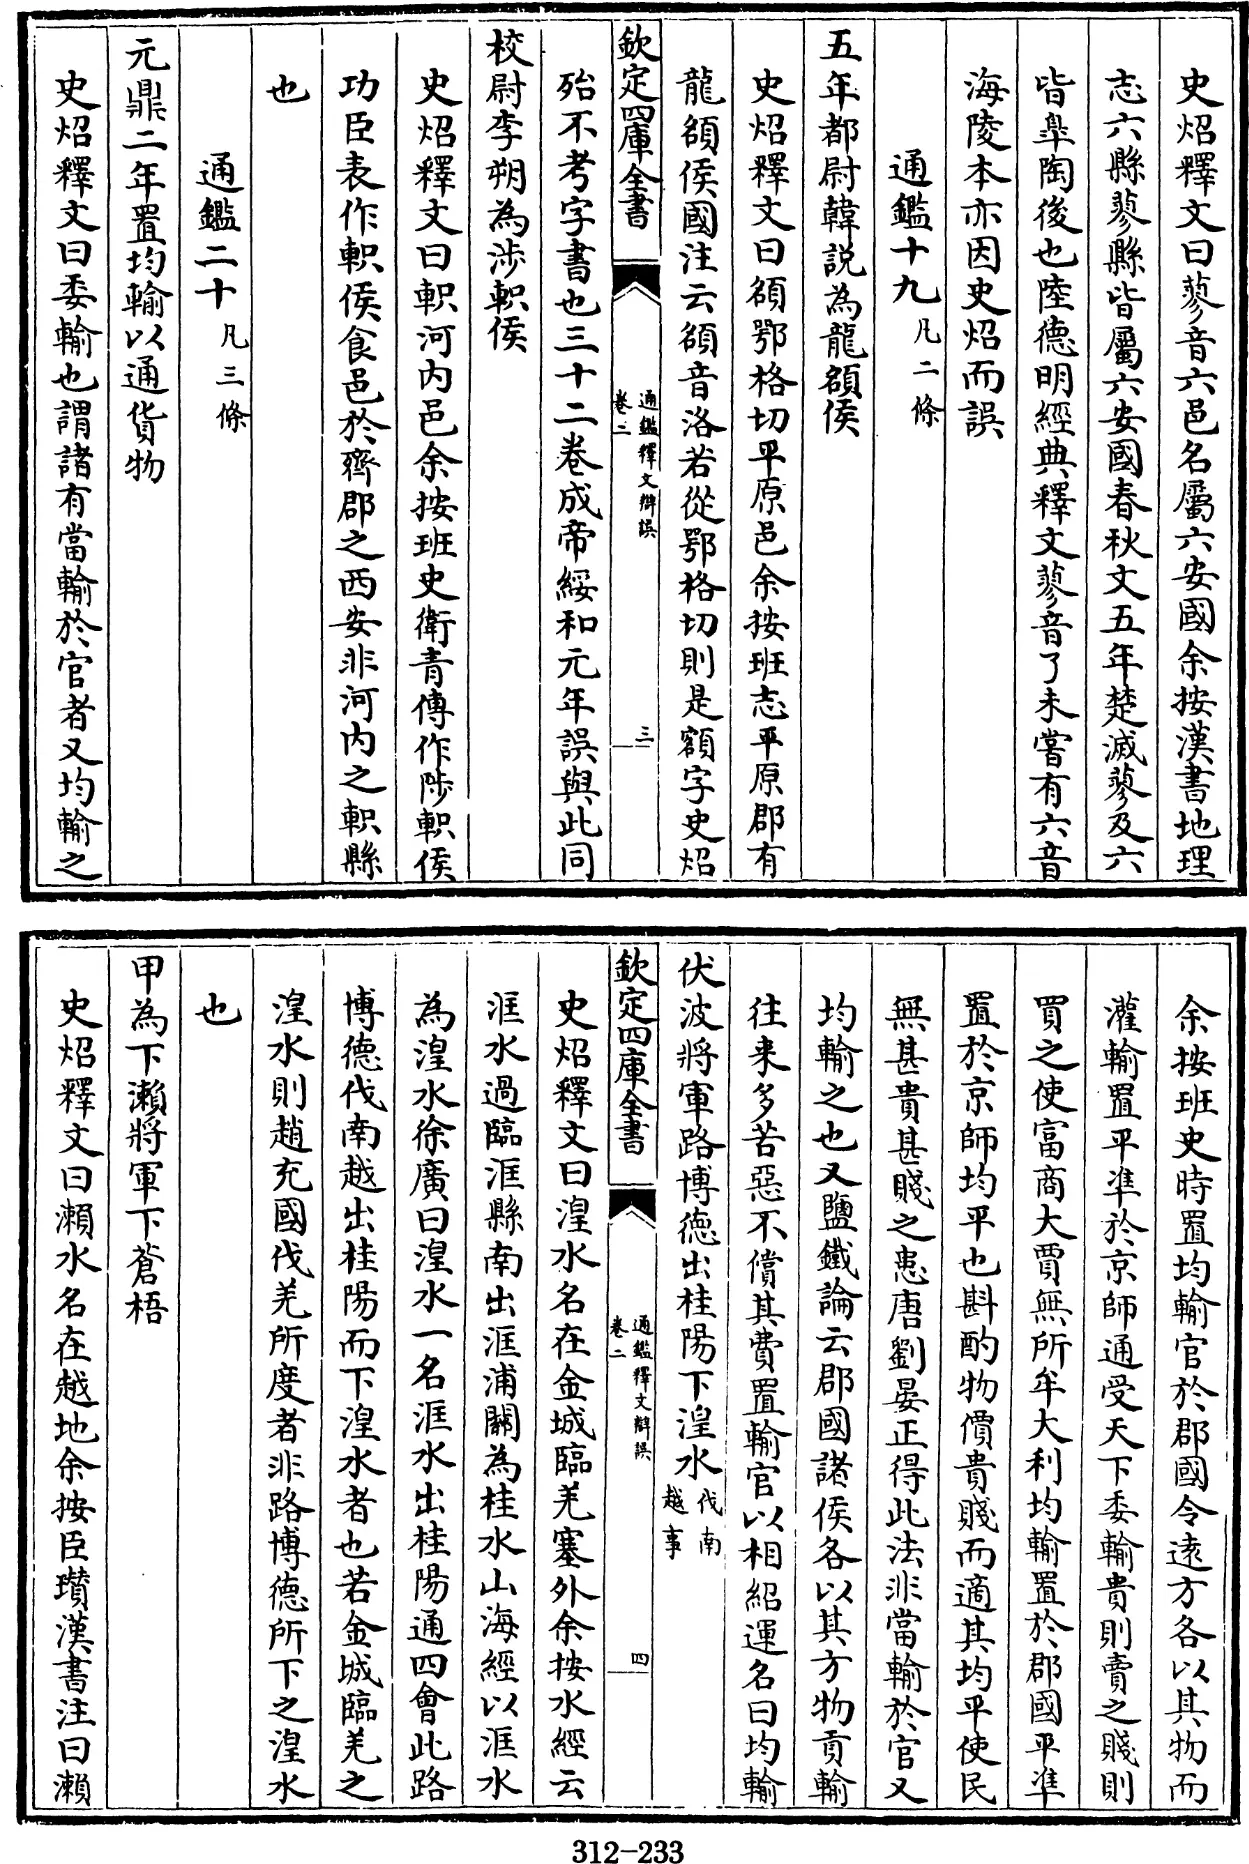 史炤釋文曰蓼音六邑名屬六安國余按漢書地理
志六縣蓼縣皆屬六安國春秋文五年楚滅蓼及六
皆臯陶後也陸德明經典釋文蓼音了未嘗有六音
海陵本亦因史炤而誤
通鑑十九凡二條
五年都尉韓説為龍頟侯
史炤釋文曰頟鄂格切平原邑余按班志平原郡有
龍頟侯國注云頟音洛若從鄂格切則是額字史炤
欽定四庫全書
通鑑釋文辯誤
卷二
三
殆不考字書也三十二卷成帝綏和元年誤與此同
校尉李朔為涉軹侯
史炤釋文曰軹河内邑余按班史衛青傳作陟軹侯
功臣表作軹侯食邑於齊郡之西安非河内之軹縣
也
通鑑二十凡三條
元鼎二年置均輸以通貨物
史炤釋文曰委輸也謂諸有當輸於官者又均輸之
余按班史時置均輸官於郡國令逺方各以其物而
灌輸置平準於京師通受天下委輸貴則賣之賤則
買之使富商大賈無所牟大利均輸置於郡國平準
置於京師均平也斟酌物價貴賤而適其均平使民
無甚貴甚賤之患唐劉晏正得此法非當輸於官又
均輸之也又鹽鐵論云郡國諸侯各以其方物貢輸
往來多苦惡不償其費置輸官以相紹運名曰均輸
伏波將軍路博德出桂陽下湟水伐南越事
欽定四庫全書
通鑑釋文辯誤
卷二
四
史炤釋文曰湟水名在金城臨羌塞外余按水經云
洭水過臨洭縣南出洭浦關為桂水山海經以洭水
為湟水徐廣曰湟水一名洭水出桂陽通四會此路
博德伐南越出桂陽而下湟水者也若金城臨羌之
湟水則趙充國伐羌所度者非路博德所下之湟水
也
甲為下瀨將軍下蒼梧
史炤釋文曰瀨水名在越地余按臣瓚漢書注曰瀨
312-233